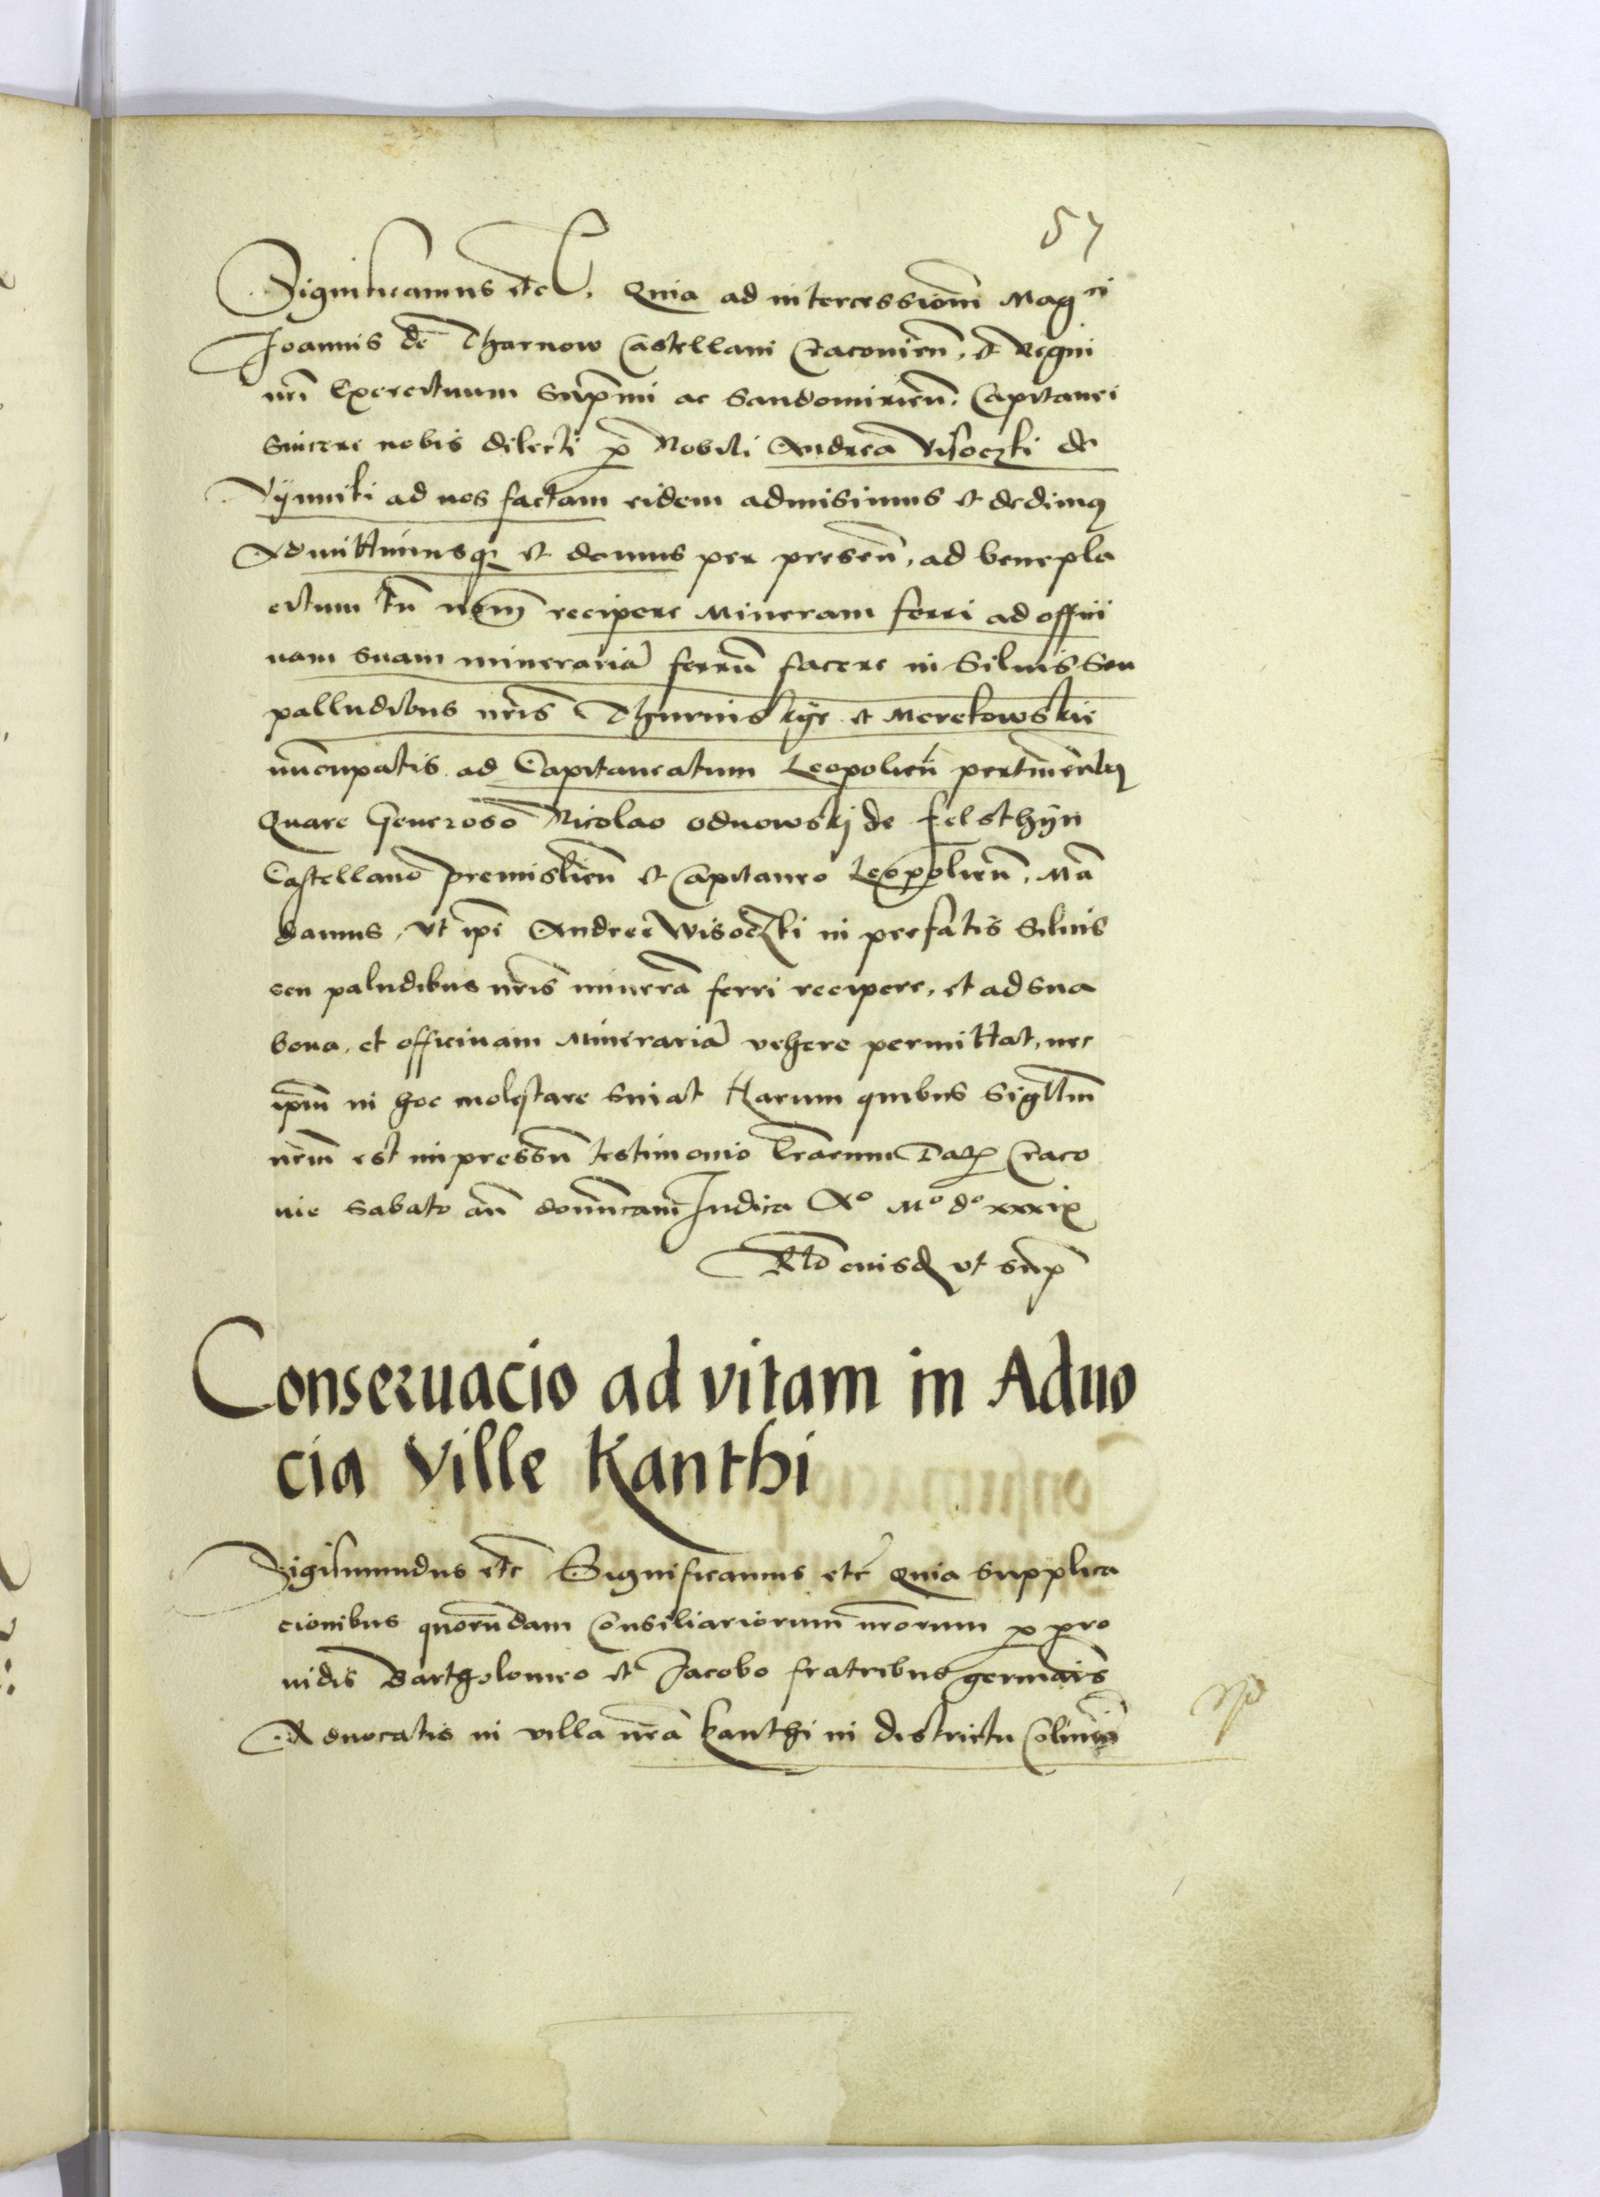 57
Significamus etc. Quia ad intercessionē Magci
Joannis de Tharnow Castellani Cracovieñ. et Regni
nrī Exercituum Supremi ac Sandomirieñ. Capitanei
Sincere nobis dilecti p̱ Nobili Andrea Visoczki de
Vÿnniki ad nos factam eidem admisimus et dedimq
Admittimusq; et damus per preseñ. ad benepla
citum tñ nrm̄ recipere Mineram ferri ad offici
nam suam minerariā ferrū facere in Siluis Seu
palludibus nrīs Thurinskÿe et Merekowskie
nūcupatis ad Capitaneatum Leopolieñ pertinentq
Quare Generoso Nicolao odnowskj de felsthÿn
Castellano premislieñ et Capitaneo Leopolieñ. Mā
damus, vt ip̄i Andree Wisoczki in prefatis Siluis
ceu paludibus nrīs minerā ferri recipere, et ad sua
bona, et officinam Minerariā vehere permittat, nec
ip̄m in hoc molestare sinat Harum quibus Sigillm̄
nrm̄ est impressū testimonio lrārum Datum Craco
uie Sabato añ dominicam Judica Ao Mo do xxxix
Rlō eiusd ut sup̄
Conseruacio ad vitam in Aduo
cia Ville Kanthi
Sigismundus etc Significamus etc Quia supplica
cionibus quorundam Consiliariorum nrōrum p̱ pro
uidis Bartholomeo et Jacobo fratribus germanis
Aduocatis in villa nrā Kanthi in districtu